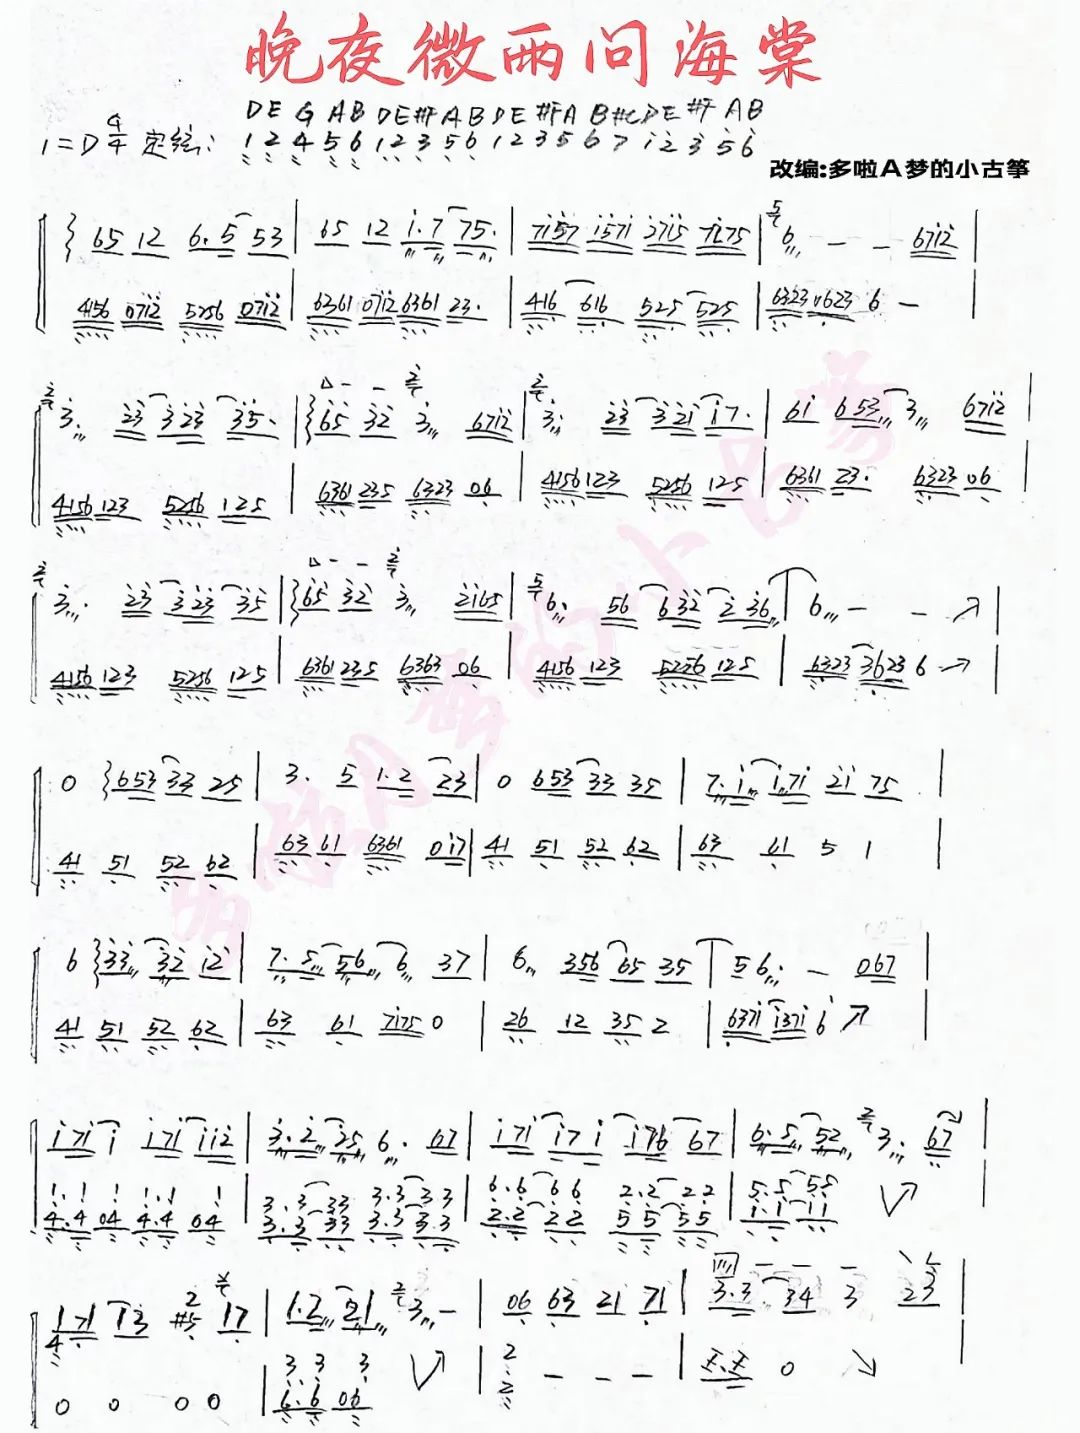 晚夜微雨问海棠
DE G AB DE#F AB DE #FA B#CDE #F AB
1=D 4/4 定弦: 1 2 4 5 6 1 2 3 5 6 1 2 3 5 6 7 1 2 3 5 6
改编:多啦A梦的小古筝
65 12 6.5 53 | 65 12 1.7 75. | 7157 1571 2715 7275 | 6 - - 6712 |
4156 0712 5256 0712 | 6361 0712 6361 23. | 416 616 525 525 | 6323 0623 6 -
3. 23 323 35. | 65 32 3 6712 | 3. 23 321 17. | 61 653 3 6712 |
4156 123 5256 125 | 6361 235 6323 06 | 4156 123 5256 125 | 6361 23. 6323 06 |
3. 23 323 35 | 65 32 3 2165 | 6. 56 632 236 | 6 - - |
4156 123 5256 125 | 6361 235 6363 06 | 4156 123 5256 125 | 6323 3623 6 |
0 653 33 25 | 3. 5 1.2 23 | 0 653 33 35 | 7.1 171 21 75 |
41 51 52 62 | 63 61 6361 017 | 41 51 52 62 | 63 61 5 1 |
6 33 32 12 | 7.5 56 6 37 | 6 356 65 35 | 56. - 067 |
41 51 52 62 | 63 61 7175 0 | 26 12 35 2 | 6371 1371 6 |
171 1 171 112 | 3.2 25 6. 67 | 171 171 176 67 | 6.5 52 3. 67 |
1.1 1 1.1 1 | 3.3 33 3.3 33 | 6.6 66 2.2 22 | 5.5 55
4.4 04 4.4 04 | 3.3 33 3.3 3.3 | 2.2 22 55 55 | 1.1 11
171 13 #5 17 | 1.2 21 3. - | 06 63 21 71 | 3.3 34 3 23 |
0 0 0 0 | 6.6 06 | 2 - - - | X.X 0